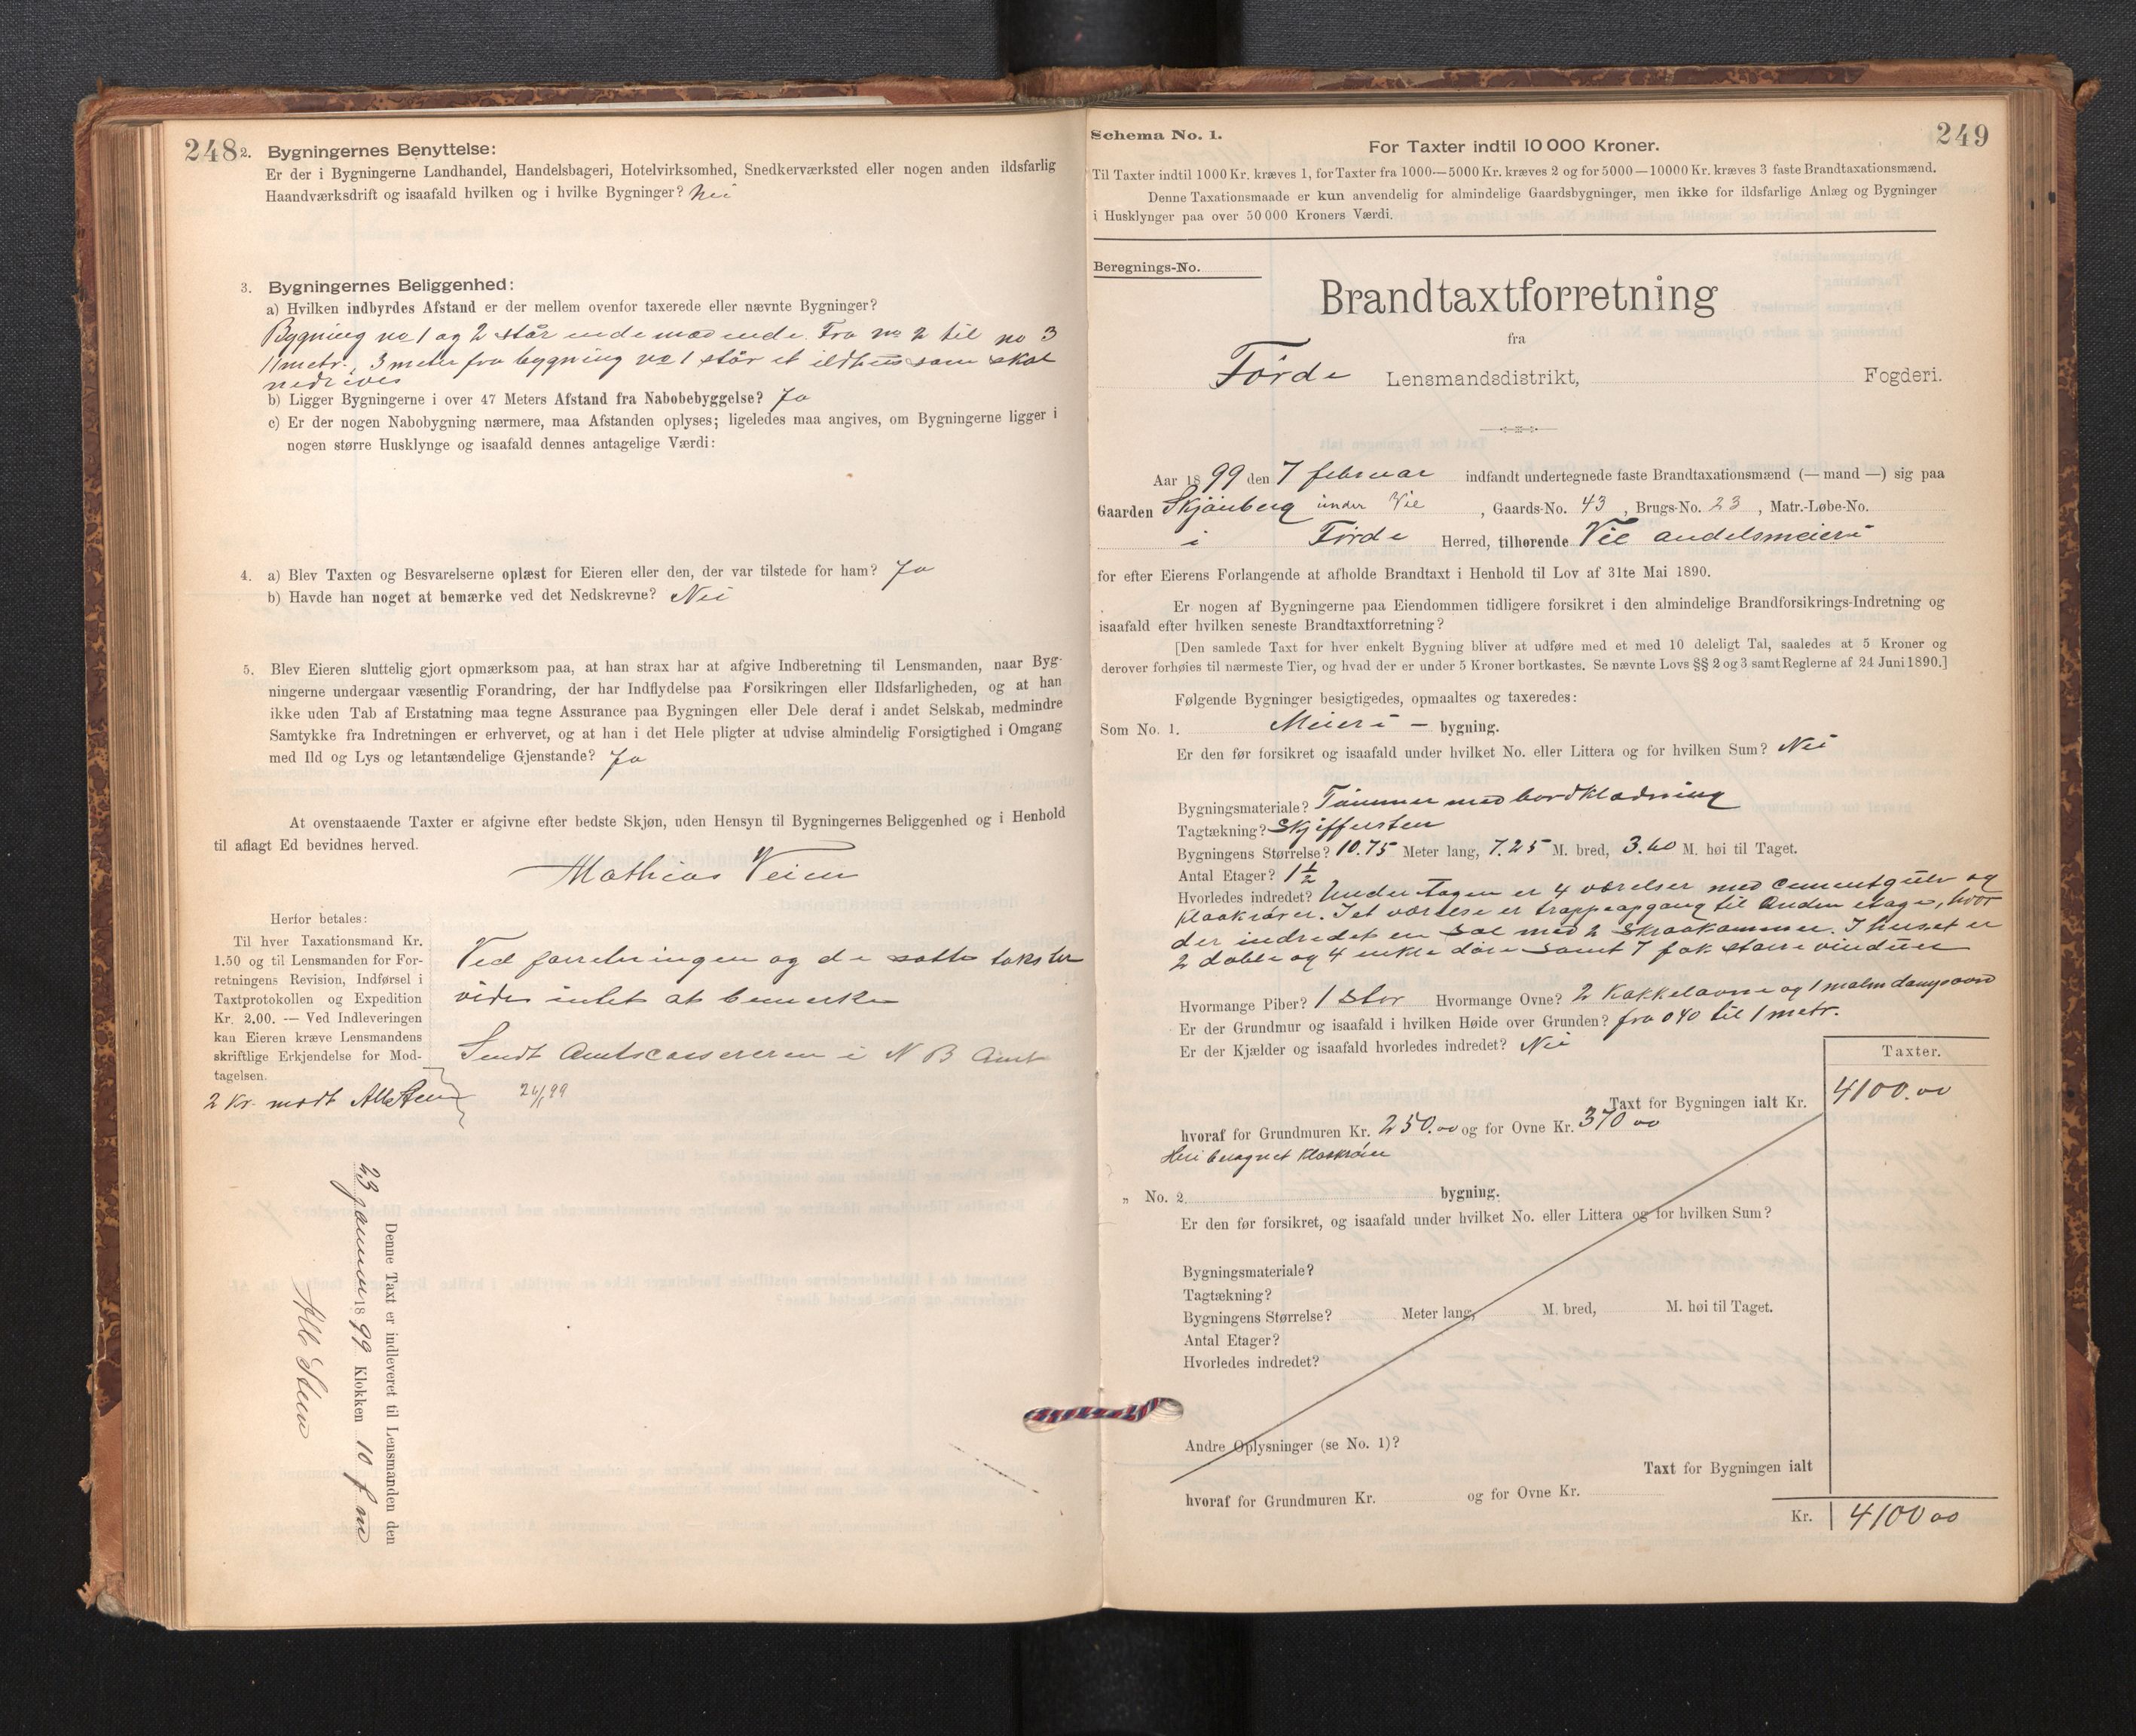 248
2. Bygningernes Benyttelse:
Er der i Bygningerne Landhandel, Handelsbageri, Hotelvirksomhed, Snedkerværksted eller nogen anden ildsfarlig
Haandværksdrift og isaafald hvilken og i hvilke Bygninger? Nei
3. Bygningernes Beliggenhed:
a) Hvilken indbyrdes Afstand er der mellem ovenfor taxerede eller nævnte Bygninger?
Bygning no 1 og 2 står ende mod ende. Fra no 2 til no 3
11 metr. 3 meter fra bygning no 1 står et ildhus som skal
nedrives
b) Ligger Bygningerne i over 47 Meters Afstand fra Nabobebyggelse? Ja
c) Er der nogen Nabobygning nærmere, maa Afstanden oplyses; ligeledes maa angives, om Bygningerne ligger i
nogen større Husklynge og isaafald dennes antagelige Værdi:
4. a) Blev Taxten og Besvarelserne oplæst for Eieren eller den, der var tilstede for ham? Ja
b) Havde han noget at bemærke ved det Nedskrevne? Nei
5. Blev Eieren sluttelig gjort opmærksom paa, at han strax har at afgive Indberetning til Lensmanden, naar Byg-
ningerne undergaar væsentlig Forandring, der har Indflydelse paa Forsikringen eller Ildsfarligheden, og at han
ikke uden Tab af Erstatning maa tegne Assurance paa Bygningen eller Dele deraf i andet Selskab, medmindre
Samtykke fra Indretningen er erhvervet, og at han i det Hele pligter at udvise almindelig Forsigtighed i Omgang
med Ild og Lys og letantændelige Gjenstande? Ja
At ovenstaaende Taxter er afgivne efter bedste Skjøn, uden Hensyn til Bygningernes Beliggenhed og i Henhold
til aflagt Ed bevidnes herved.
Mathias Veien
Herfor betales:
Til hver Taxationsmand Kr.
1.50 og til Lensmanden for For-
retningens Revision, Indførsel i
Taxtprotokollen og Expedition
Kr. 2.00. — Ved Indleveringen
kan Eieren kræve Lensmandens
skriftlige Erkjendelse for Mod-
tagelsen.
2 Kr. modt
Ved forretningen og de satte takster
vides intet at bemerke
Sendt Amtscassereren i N B Amt
Denne Taxt er indleveret til Lensmanden den
23 januar 1899 Klokken 10 f m
249
Schema No. 1.
For Taxter indtil 10 000 Kroner.
Til Taxter indtil 1000 Kr. kræves 1, for Taxter fra 1000—5000 Kr. kræves 2 og for 5000—10000 Kr. kræves 3 faste Brandtaxationsmænd.
Denne Taxationsmaade er kun anvendelig for almindelige Gaardsbygninger, men ikke for ildsfarlige Anlæg og Bygninger
i Husklynger paa over 50 000 Kroners Værdi.
Beregnings-No.
Brandtaxtforretning
fra
Förde Lensmandsdistrikt, Fogderi.
Aar 1899 den 7 februar indfandt undertegnede faste Brandtaxationsmænd (— mand —) sig paa
Gaarden Skjönberg under Vie, Gaards-No. 43, Brugs-No. 23, Matr.-Løbe-No.
i Förde Herred, tilhørende Vie andelsmeieri
for efter Eierens Forlangende at afholde Brandtaxt i Henhold til Lov af 31te Mai 1890.
Er nogen af Bygningerne paa Eiendommen tidligere forsikret i den almindelige Brandforsikrings-Indretning og
isaafald efter hvilken seneste Brandtaxtforretning?
[Den samlede Taxt for hver enkelt Bygning bliver at udføre med et med 10 deleligt Tal, saaledes at 5 Kroner og
derover forhøies til nærmeste Tier, og hvad der er under 5 Kroner bortkastes. Se nævnte Lovs §§ 2 og 3 samt Reglerne af 24 Juni 1890.]
Følgende Bygninger besigtigedes, opmaaltes og taxeredes:
Som No. 1. Meieri — bygning.
Er den før forsikret og isaafald under hvilket No. eller Littera og for hvilken Sum? Nei
Bygningsmateriale? Tömmer med bordklædning
Tagtækning? Skiffersten
Bygningens Størrelse? 10.75 Meter lang, 7.25 M. bred, 3.60 M. høi til Taget.
Antal Etager? 1 1/2
Hvorledes indredet? Under tagen er 4 værelser med cementgulv og
kloakrører. I et værelse er trappeopgang til Anden etage, hvor
der indredet en sal med 2 skraakammer. I huset er
2 doble og 4 enkle döre samt 7 fak större vinduer
Hvormange Piber? 1 stor Hvormange Ovne? 2 Kakkelovne og 1 malm dampovn
Er der Grundmur og isaafald i hvilken Høide over Grunden? fra 040 til 1 metr.
Er der Kjælder og isaafald hvorledes indredet? Nei
Taxter.
Taxt for Bygningen ialt Kr. 4100.00
hvoraf for Grundmuren Kr. 250.00 og for Ovne Kr. 370 00
Heri beregnet Kloakrörer
„ No. 2. bygning.
Er den før forsikret, og isaafald under hvilket No. eller Littera og for hvilken Sum?
Bygningsmateriale?
Tagtækning?
Bygningens Størrelse? Meter lang, M. bred, M. høi til Taget.
Antal Etager?
Hvorledes indredet?
Andre Oplysninger (se No. 1)?
Taxt for Bygningen ialt
hvoraf for Grundmuren Kr. og for Ovne Kr.
Kr. 4100 00